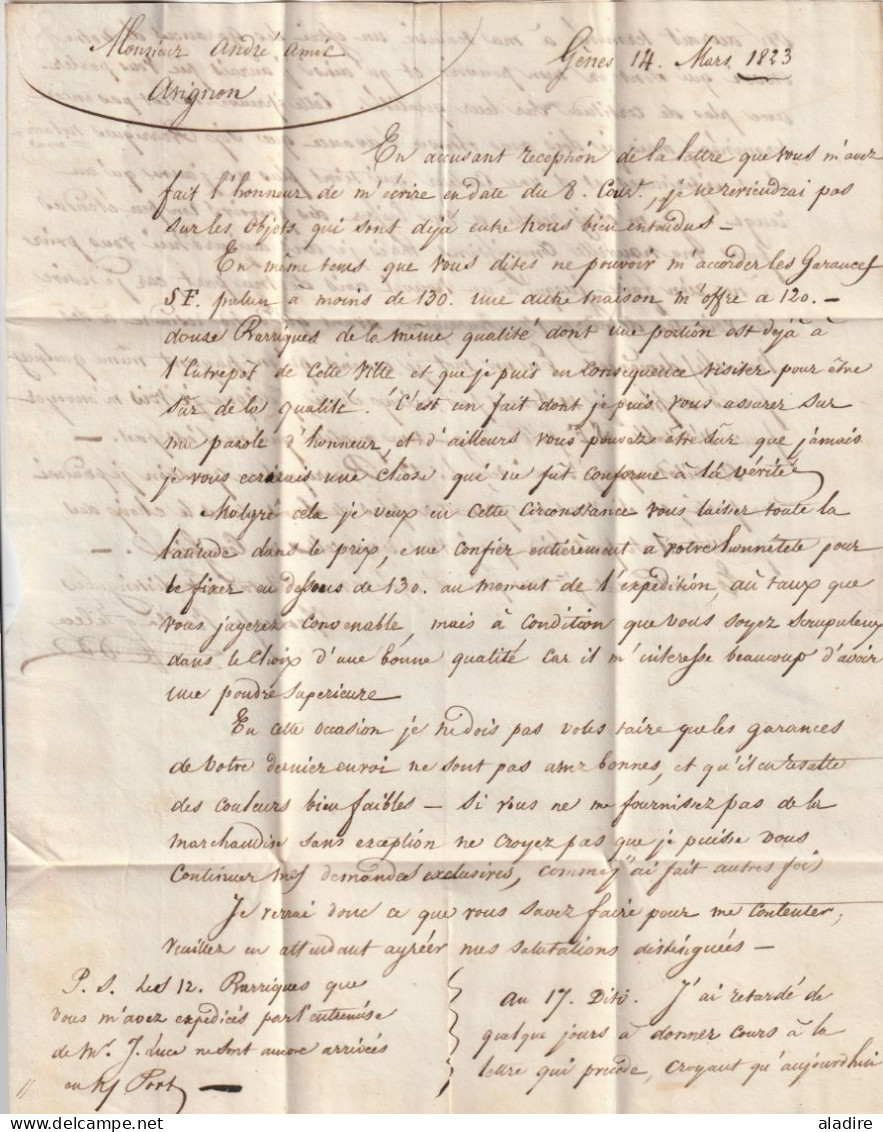 Monsieur André Amic
Avignon
Gênes 14. Mars 1823
En accusant reception de la lettre que vous m'avez
fait l'honneur de m'écrire en date du 8. Cour.t, je ne reviendrai pas
sur les objets qui sont déjà entre nous bien entendus —
En même tems que vous dites ne pouvoir m'accorder les Garances
SF. palun à moins de 130. une autre maison m'offre a 120. —
douse Barriques de la même qualité dont une portion est déjà à
l'Entrepôt de Cette Ville et que je puis en Conséquence visiter pour être
sûr de la qualité. C'est un fait dont je puis vous assurer sur
ma parole d'honneur, et d'ailleurs vous pouvez être sûr que jamais
je vous ecrirais une chose qui ne fut conforme à la vérité
Malgré cela je veux en Cette Circonstance vous laisser toute la
latitude dans le prix, e me confier entièrement à votre honnêteté pour
le fixer en dessous de 130. au moment de l'expédition, au taux que
vous jugerez convenable, mais à condition que vous soyez scrupuleux
dans le Choix d'une bonne qualité car il m'interesse beaucoup d'avoir
une poudre superieure
En Cette occasion je ne dois pas vous taire que les garances
de votre dernier envoi ne sont pas assez bonnes, et qu'il en resulte
des couleurs bien faibles — Si vous ne me fournissez pas de la
marchandise sans exception ne croyez pas que je puisse vous
Continuer mes demandes exclusives, comme j'ai fait autres fois
Je verrai donc ce que vous savez faire pour me contenter,
veuillez en attendant agréer mes salutations distinguées —
P. S. Les 12. Barriques que
vous m'avez expédiées par l'entremise
de Mr. J. Luce ne sont encore arrivées
en n/ Port
au 17. Dito. J'ai retardé de
quelque jours à donner cours à la
lettre qui précède, croyant qu'aujourdhui
aladire
delcampe.net